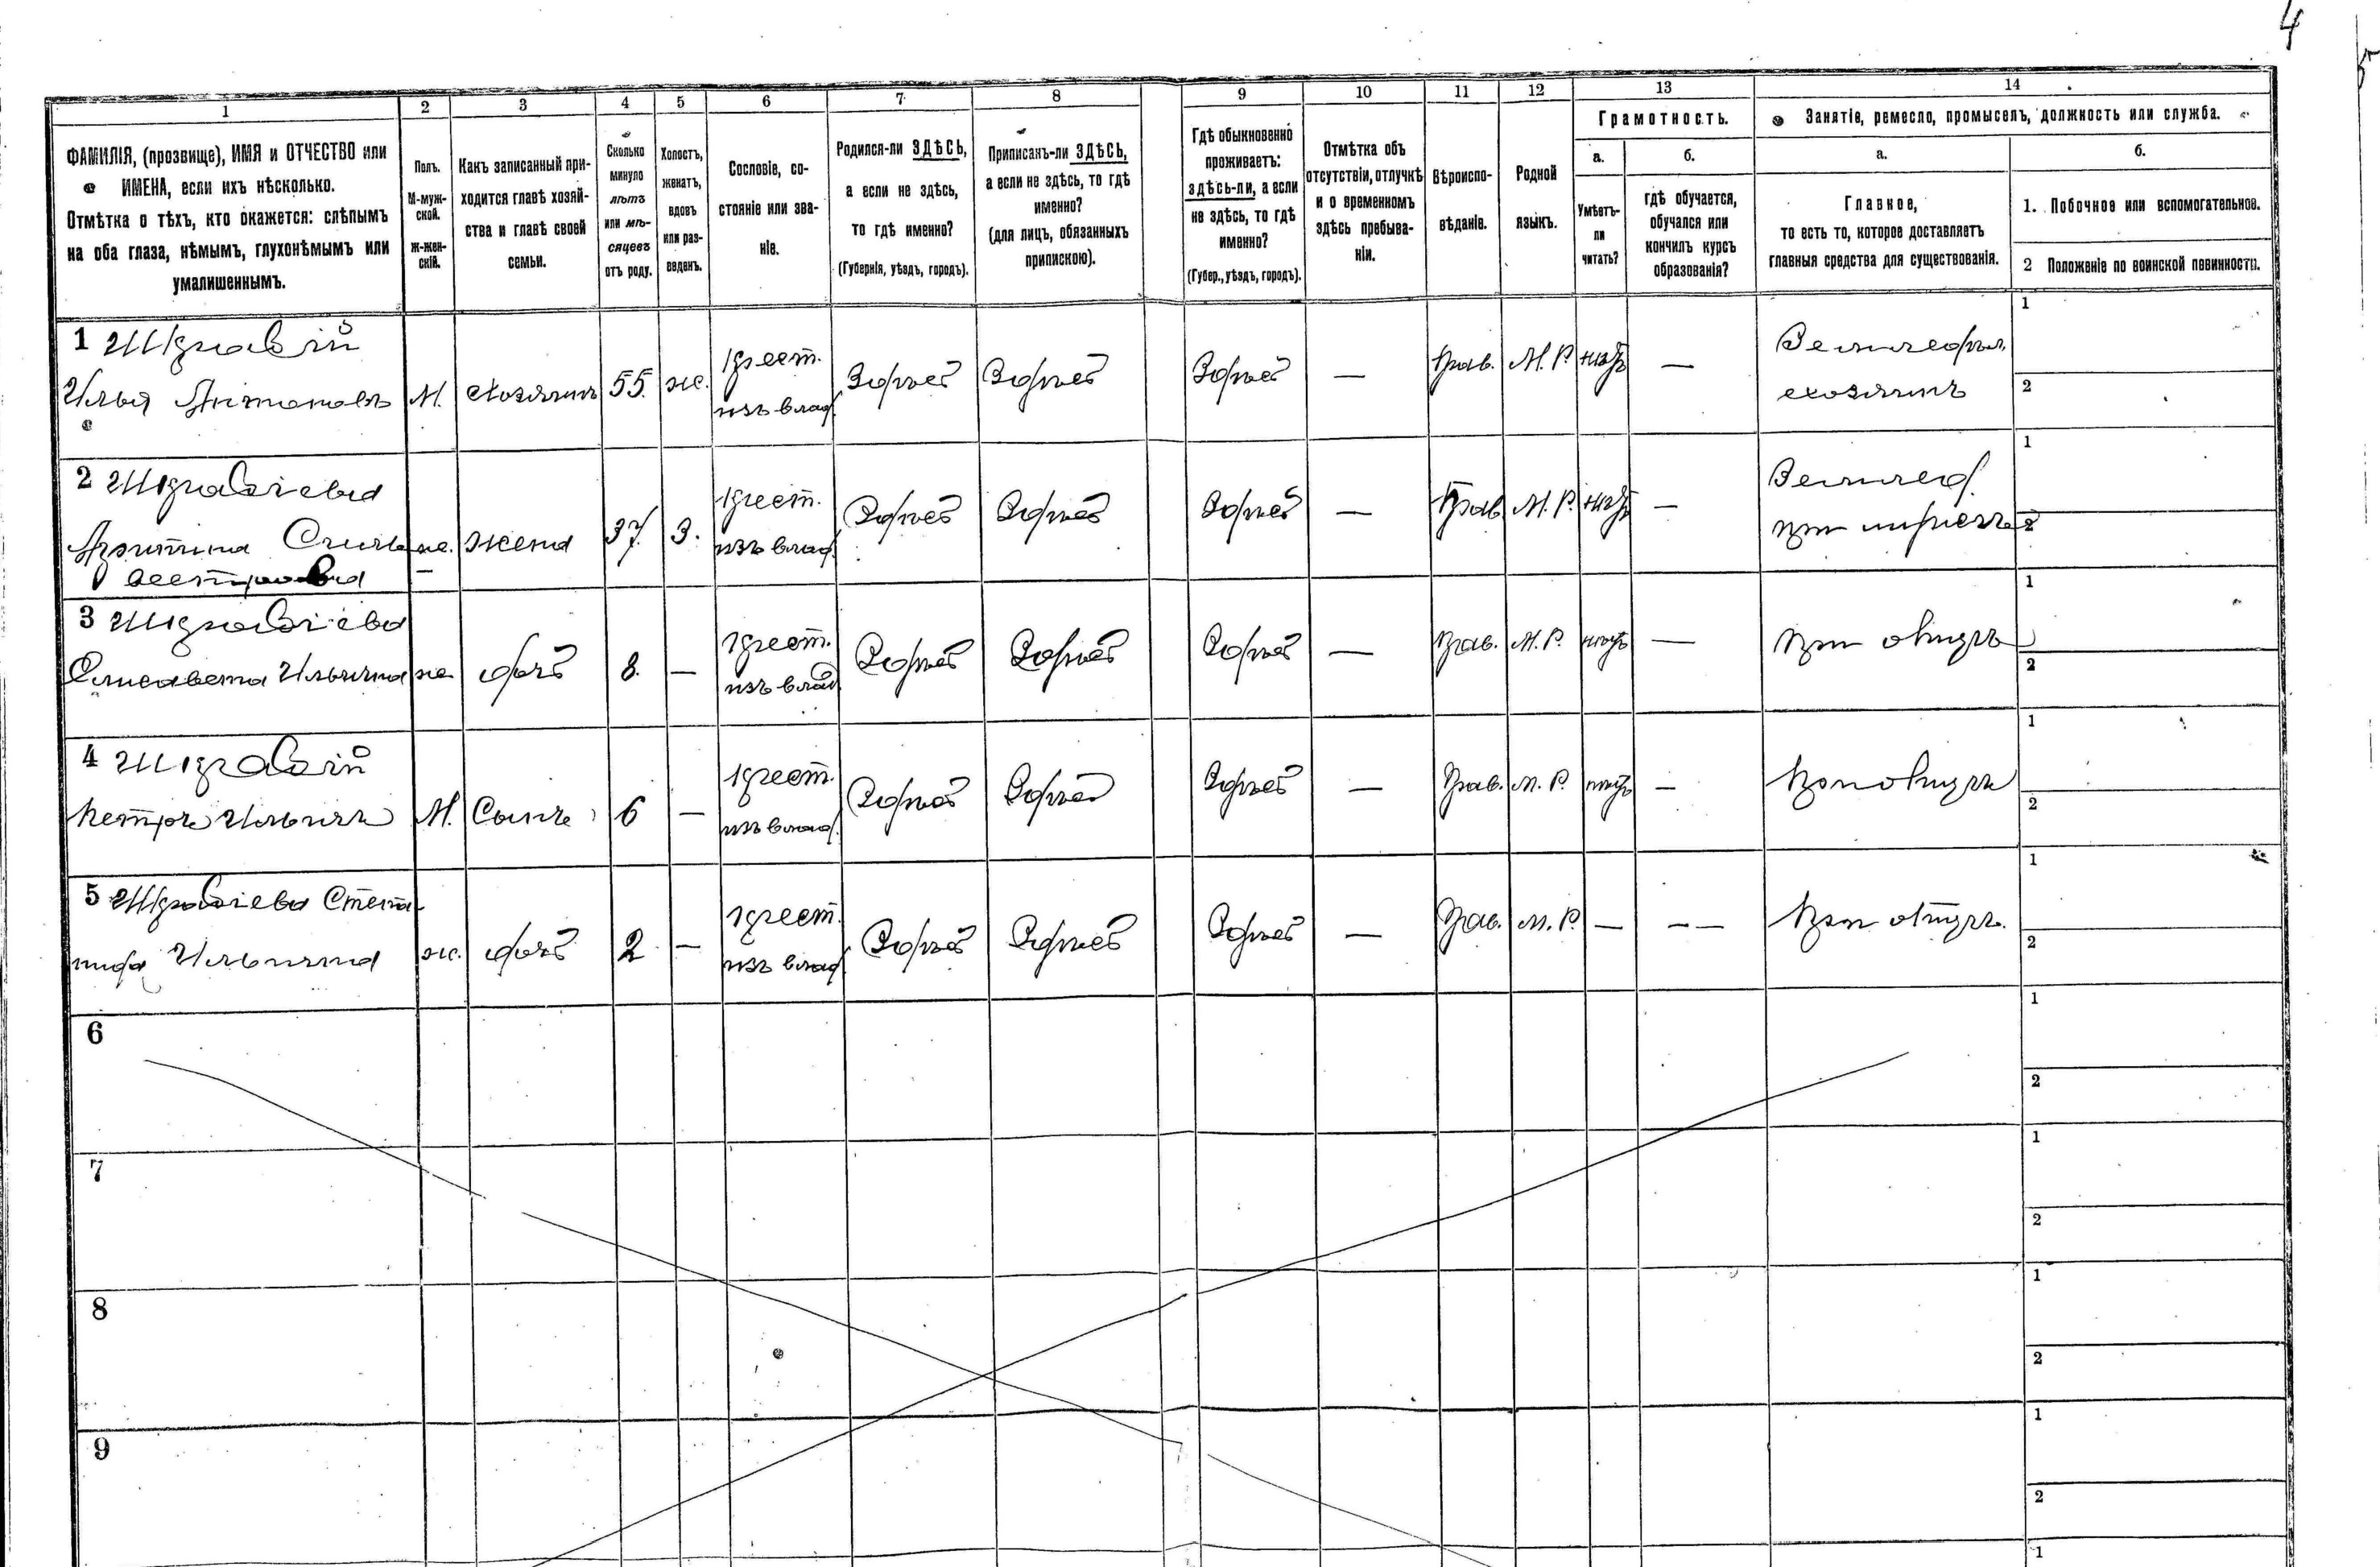 4
1 2 3 4 5 6 7 8 9 10 11 12 13 14
ФАМИЛІЯ, (прозвище), ИМЯ и ОТЧЕСТВО или
ИМЕНА, если ихъ нѣсколько.
Отмѣтка о тѣхъ, кто окажется: слѣпымъ
на оба глаза, нѣмымъ, глухонѣмымъ или
умалишеннымъ.
Полъ.
М-муж-
ской.
Ж-жен-
скій.
Какъ записанный при-
ходится главѣ хозяй-
ства и главѣ своей
семьи.
Сколько
минуло
лѣтъ
или мѣ-
сяцевъ
отъ роду.
Холостъ,
женатъ,
вдовъ
или раз-
веденъ.
Сословіе, со-
стояніе или зва-
ніе.
Родился-ли ЗДѢСЬ,
а если не здѣсь,
то гдѣ именно?
(Губернія, уѣздъ, городъ).
Приписанъ-ли ЗДѢСЬ,
а если не здѣсь, то гдѣ
именно?
(для лицъ, обязанныхъ
припискою).
Гдѣ обыкновенно
проживаетъ:
здѣсь-ли, а если
не здѣсь, то гдѣ
именно?
(Губер., уѣздъ, городъ).
Отмѣтка объ
отсутствіи, отлучкѣ
и о временномъ
здѣсь пребыва-
ніи.
Вѣроиспо-
вѣданіе.
Родной
языкъ.
Грамотность.
а.
Умѣетъ-
ли
читать?
б.
гдѣ обучается,
обучался или
кончилъ курсъ
образованія?
Занятіе, ремесло, промыселъ, должность или служба.
а.
Главное,
то есть то, которое доставляетъ
главныя средства для существованія.
б.
1. Побочное или вспомогательное.
2 Положеніе по воинской повинности.
1
Илья Антоновъ М. хозяинъ 55. ж. крест. изъ влад. Здѣсь Здѣсь Здѣсь — Прав. М. Р. нѣтъ — Земледѣл. хозяинъ 1 2
2
жена 37. З. крест. изъ влад. Здѣсь Здѣсь Здѣсь — Прав. М. Р. нѣтъ — Землед. при мужѣ 1 2
3
Елисавета Ильична ж. дочь 8. — крест. изъ влад. Здѣсь Здѣсь Здѣсь — Прав. М. Р. нѣтъ — при отцѣ 1 2
4
Петръ Ильичъ М. Сынъ 6 — крест. изъ влад. Здѣсь Здѣсь Здѣсь — Прав. М. Р. нѣтъ — при отцѣ 1 2
5 Степа-
нида Ильична ж. дочь 2 — крест. изъ влад. Здѣсь Здѣсь Здѣсь — Прав. М. Р. — — — при отцѣ 1 2
6 1 2
7 1 2
8 1 2
9 1 2
1